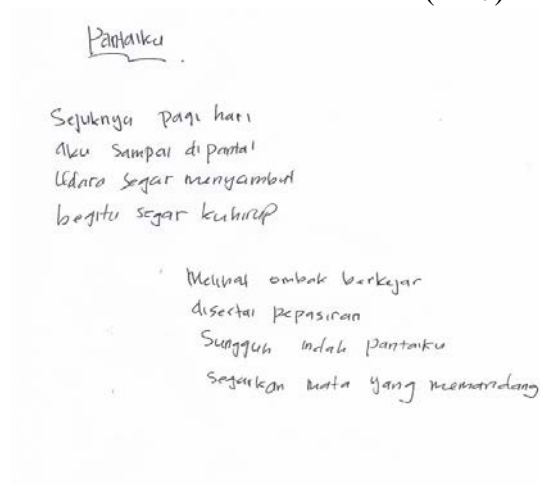 Pantaiku
Sejuknya pagi hari
aku sampai di pantai
Udara segar menyambut
begitu segar kuhirup
Melihat ombak berkejar
disertai pepasiran
Sungguh indah pantaiku
Segarkan mata yang memandang